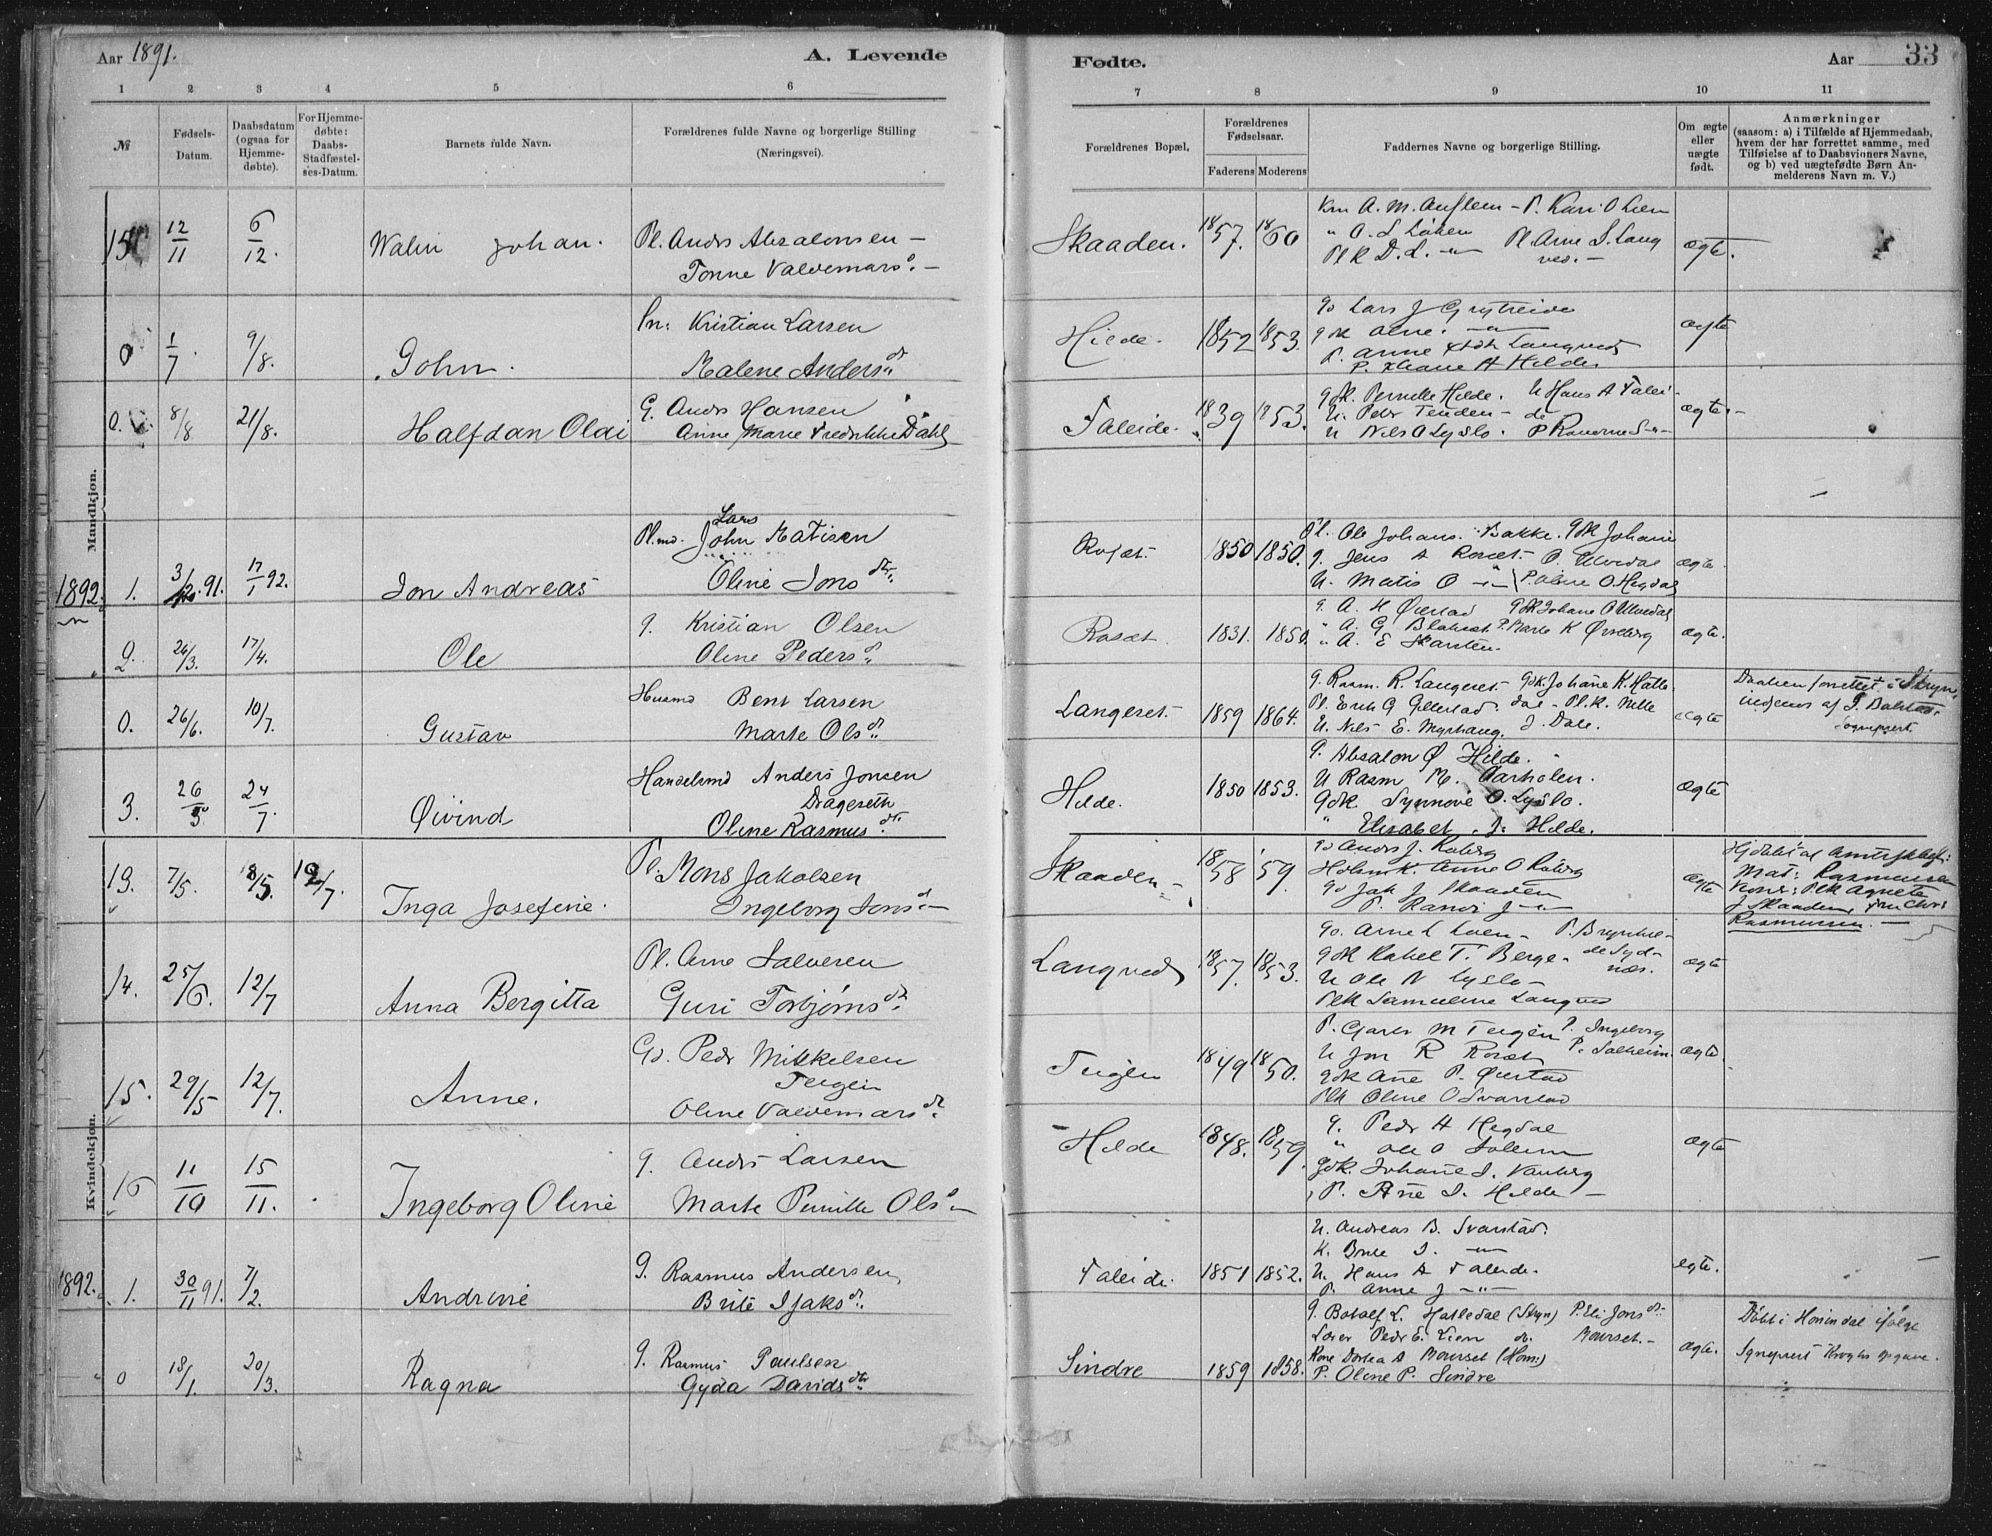 Aar 1891.
A. Levende
Fødte.
Aar
33
1 2 3 4 5 6
7 8 9 10 11
№
Fødsels-
Datum.
Daabsdatum
(ogsaa for
Hjemme-
døbte).
For Hjemme-
døbte:
Daabs-
Stadfæstel-
ses-Datum.
Barnets fulde Navn.
Forældrenes fulde Navne og borgerlige Stilling
(Næringsvei).
Forældrenes Bopæl,
Forældrenes
Fødselsaar.
Faderens Moderens
Faddernes Navne og borgerlige Stilling.
Om ægte
eller
uægte
født.
Anmærkninger
(saasom: a) i Tilfælde af Hjemmedaab,
hvem der har forrettet samme, med
Tilføielse af to Daabsvidners Navne,
og b) ved uægtefødte Børn An-
melderens Navn m. V.)
Mandkjøn.
15 12/11 6/12. Walin Johan. Pl. Anders Absalonsen –
Tonne Valdemarsd. –
Skaaden. 1857. 1860
" O. L. Løken Pl. Arne S. Lang
ved. –
ægte.
0 1/7 9/8. John. Kristian Larsen
Malene Andersdt
Hilde. 1852 1853.
Go Lars J Grytreide
ægte
P. Eliane A Hilde
0. 8/8 21/8. Halfdan Olai G. Anders Hansen
Anne Marie Fredrikke Dahl
Faleide. 1839 1853.
Gdk. Pernille Hilde. U Hans A Falei-
U. Peder Tenden – de
U Nils O Lyslo.
ægte –
1892. 1. 3/12 91. 17/1 92. Jon Andreas Pl.md. John Matisen
Lars
Oline Jonsdtr.
Roset. 1850 1850.
Pl. Ole Johans. Bakke. Gdk Johane
G. Jens A Roset – O. Ulvedal
U. Matis O – " – P. Oline O. Hegdal
ægte.
2. 26/3. 17/4. Ole G. Kristian Olsen
Oline Pedersd.
Roset. 1831. 1850.
G. A. H Øvrstad Gdk Johane O Ulvedal
" A. E Skarsten.
ægte.
0. 26/6. 10/7. Gustav Husmd Bent Larsen
Marte Olsdt.
Langeset. 1859 1864.
G. Rasm. R. Langeset. Gdk. Johane K. Hatle-
Pl. Erik G Gllerstad. dal – Pl.k. Nille
U. Nils E. Myrhaug. J. Dale.
ægte
Daaben forrettet i Stryn,
Sognepræst.
3. 26/5 24/7 Øivind Handelsmd Anders Jonsen
Drageseth
Oline Rasmusdtr.
Hilde. 1850 1853.
G. Absalon Ø Hilde.
U Rasm M. Aarholen.
Gdk. Synnøve O. Lyslo.
" Elisabet J. Hilde.
ægte
Kvindekjøn.
13. 7/5. 18/5. 12/7. Inga Josefine. Pl. Mons Jakobsen
Ingeborg Jonsd –
Skaaden – 1858 59.
Go Anders J. Raberg
Go Jak J Skaaden
P. Randi J – " –
ægte
Mat: Rasmussen
Kone: Plk Agnete
J Skaaden, Fru Chr:
Rasmussen. –
14. 25/6. 12/7 Anna Bergitta Pl. Arne Salvesen
Guri Torbjørnsdt.
Langved 1857. 1853.
Go. Arne L Loen – P. Brynhil-
Gdk Rakel T. Berge – de Syd-
U Ole N Lyslo – næs.
Plk Samueline Langved
ægte
15. 29/5 12/7. Anne. Go. Peder Mikkelsen
Teigen
Oline Valdemarsdt.
Teigen 1849 1850.
P. Garts M Teigen P. Ingeborg
U Jon R Roset P. Solheim.
Gdk Ane P. Øvrstad
Plk Oline O Svarstad
ægte.
16 11/10 15/11. Ingeborg Oline G. Anders Larsen
Marte Pernille Olsd –
Hilde 1848. 1859.
G. Peder H Hegdal
" Ole O Solem
Gdk. Johane I. Vanberg
P. Ane I. Hilde –
ægte
1892. 1. 30/11 91. 7/2. Andrine G. Rasmus Andersen
Brite Isaksdt.
Faleide. 1851 1852.
U. Andreas B. Svarstad.
K. Brite I. – " –
U. Hans A Faleide.
P. Anne J – " –
ægte.
0 18/1. 20/3. Ragna G. Rasmus Paulsen
Gyda Davidsdtr.
Sindre 1859 1858.
G. Botolf L. Hatledal (Stryn) P. Eli Jonsdt
Lærer Peder E. Lien do. Mourset. –
Kone Dortea A Mourset (Horn:)
P. Oline P. Sindre
ægte.
Døbt i Hornindal ifølge
Sgnepræst Kroghs opgave.